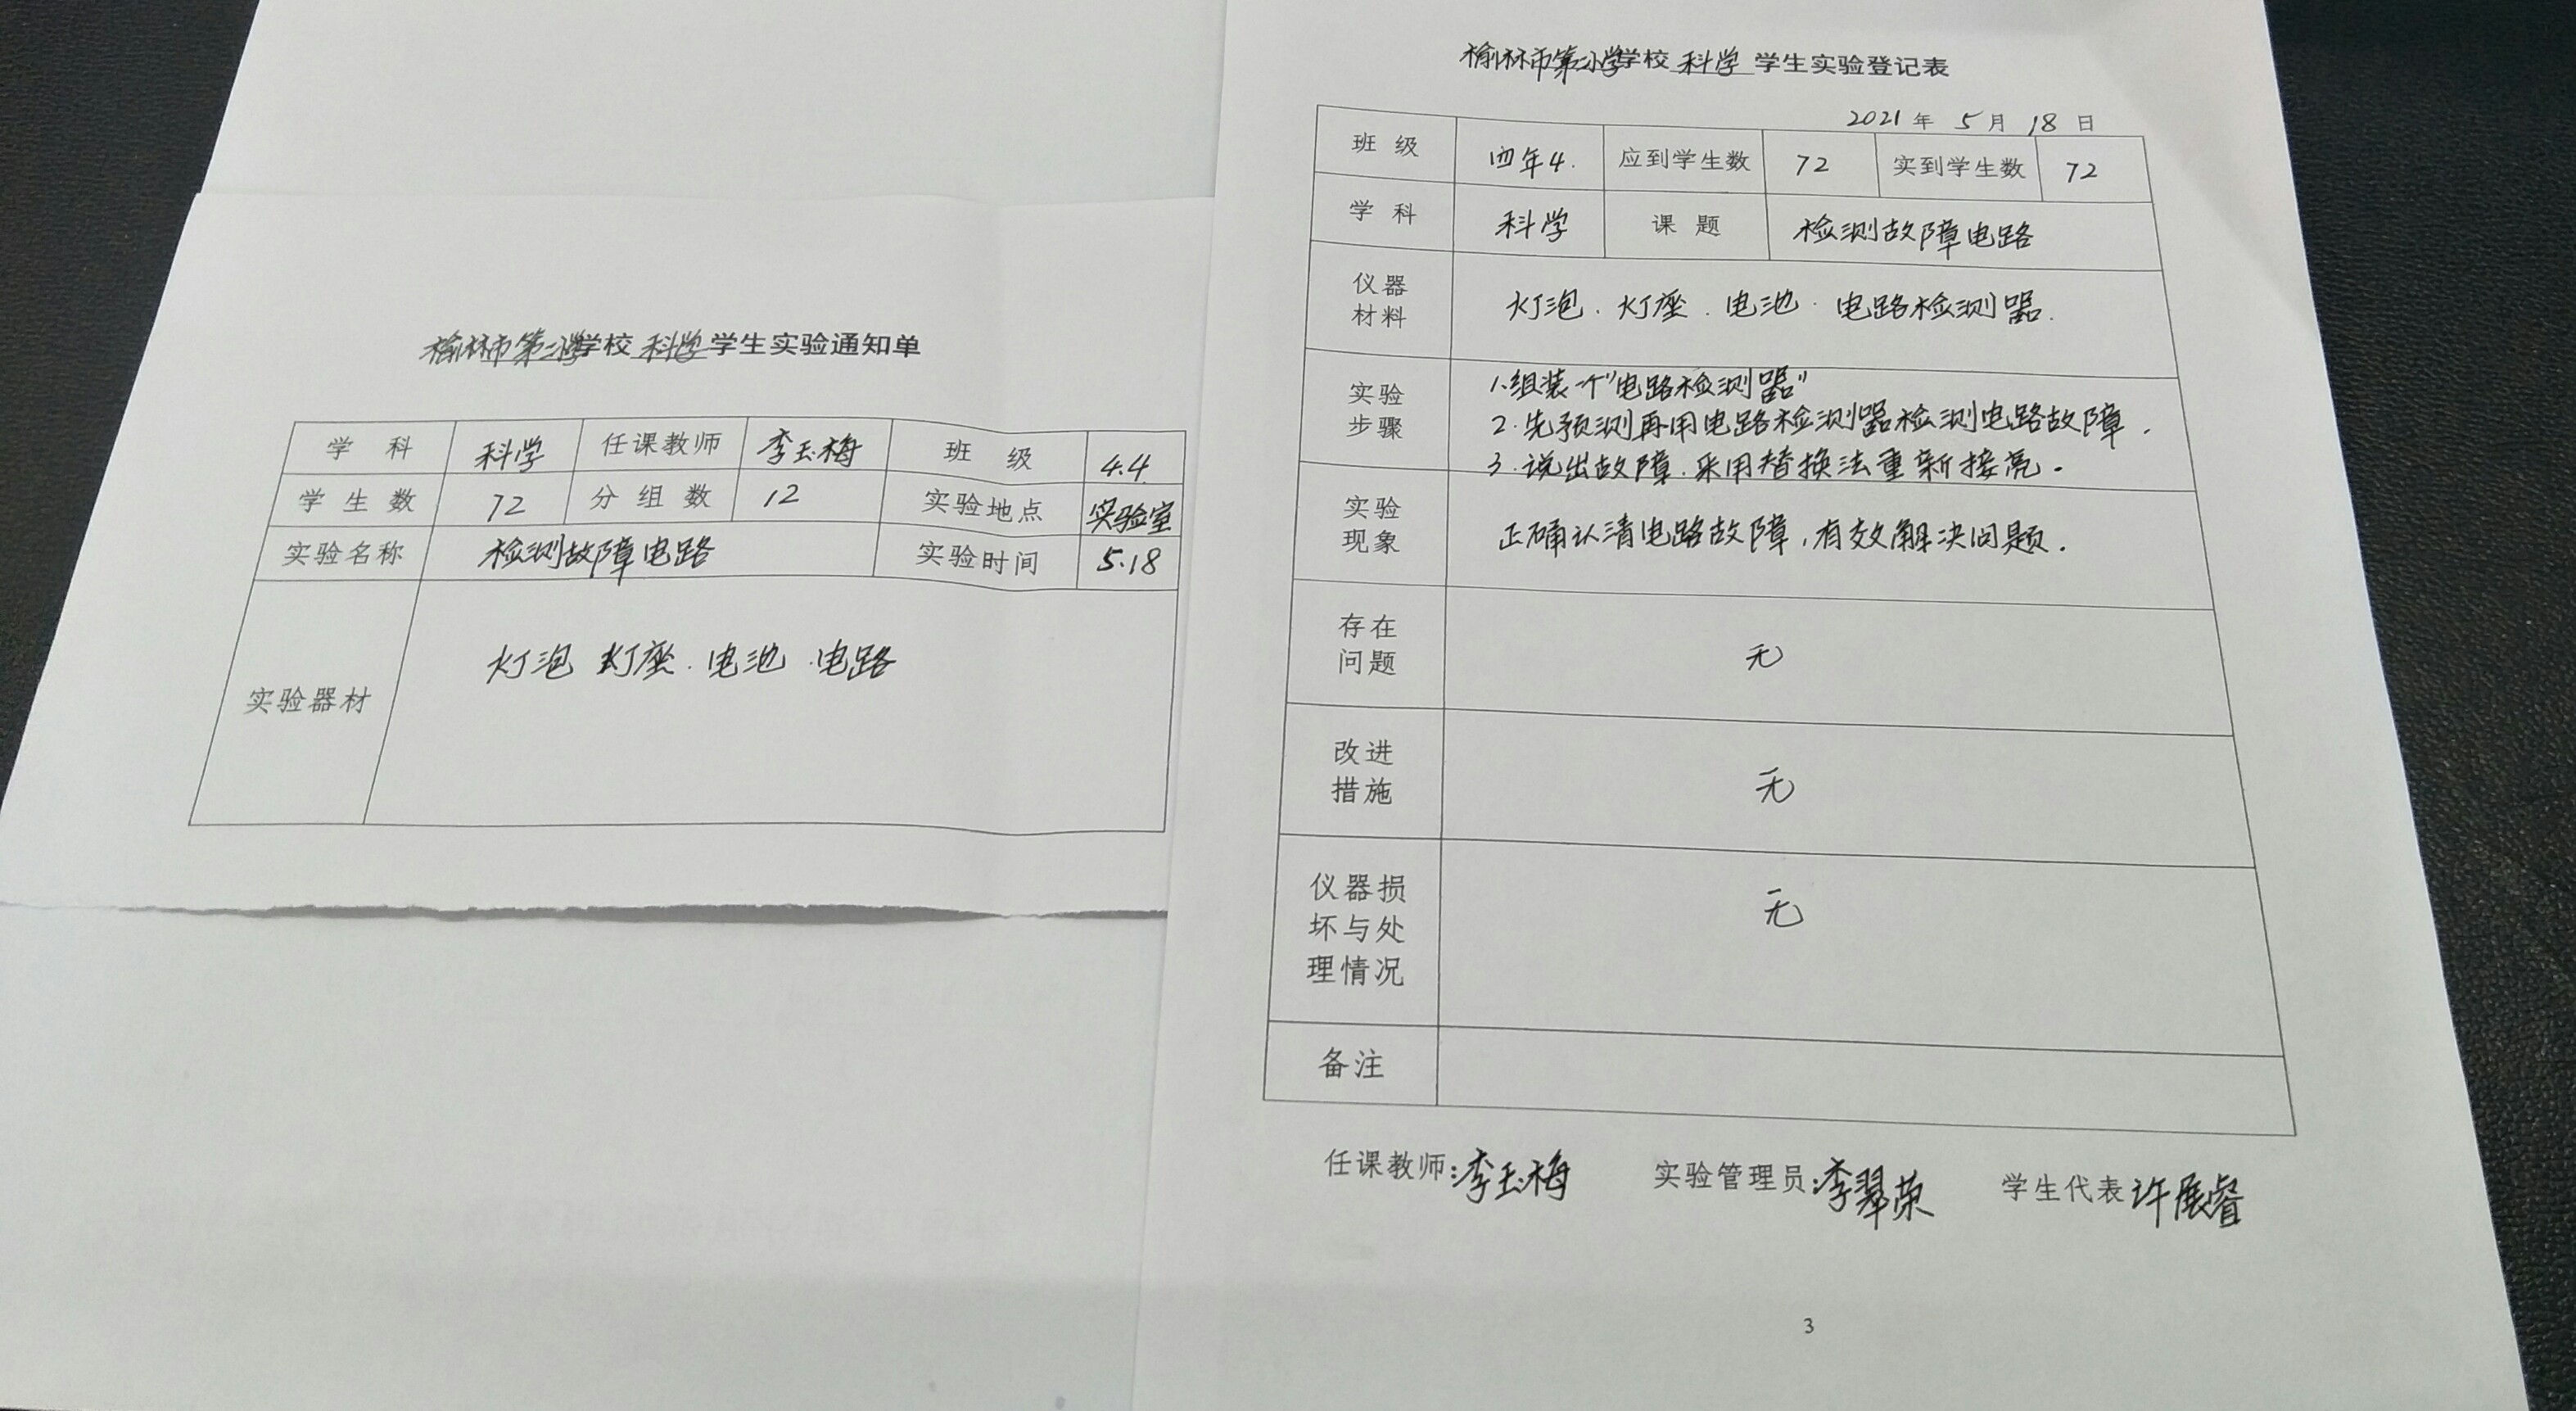 榆林市第二小学学校 科学 学生实验通知单
学 科 科学 任课教师 李玉梅 班 级 4.4
学 生 数 72 分 组 数 12 实验地点 实验室
实验名称 检测故障电路 实验时间 5.18
实验器材 灯泡 灯座.电池.电路
榆林市第二小学学校 科学 学生实验登记表
2021 年 5 月 18 日
班 级 四年4. 应到学生数 72 实到学生数 72
学 科 科学 课 题 检测故障电路
仪器
材料
灯泡.灯座.电池.电路检测器.
实验
步骤
1.组装一个"电路检测器"
2.先预测再用电路检测器检测电路故障.
3.说出故障.采用替换法重新接亮.
实验
现象
正确认清电路故障,有效解决问题.
存在
问题
无
改进
措施
无
仪器损
坏与处
理情况
无
备注
任课教师:李玉梅 实验管理员:李翠荣 学生代表 许展睿
3